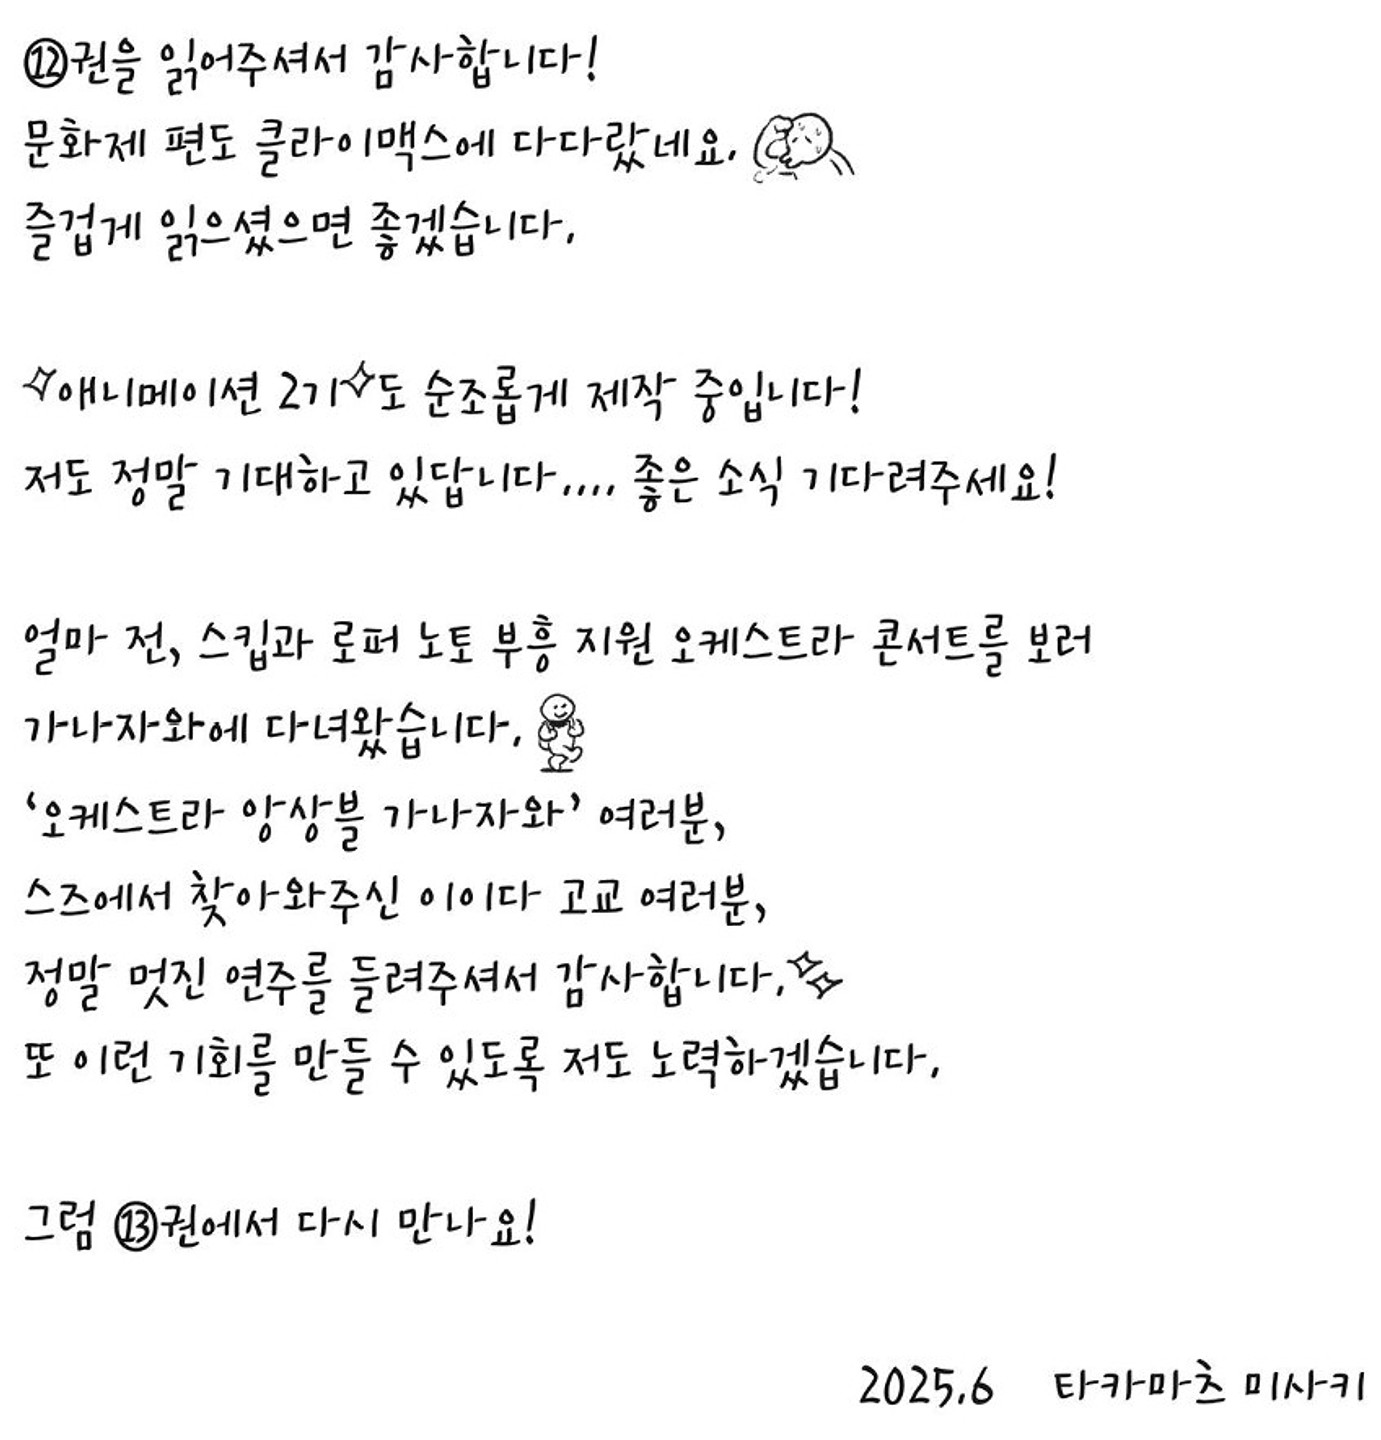 ⑫권을 읽어주셔서 감사합니다!
문화제 편도 클라이맥스에 다다랐네요.
즐겁게 읽으셨으면 좋겠습니다.
애니메이션 2기도 순조롭게 제작 중입니다!
저도 정말 기대하고 있답니다.... 좋은 소식 기다려주세요!
얼마 전, 스킵과 로퍼 노토 부흥 지원 오케스트라 콘서트를 보러
가나자와에 다녀왔습니다.
‘오케스트라 앙상블 가나자와’ 여러분,
스즈에서 찾아와주신 이이다 고교 여러분,
정말 멋진 연주를 들려주셔서 감사합니다.
또 이런 기회를 만들 수 있도록 저도 노력하겠습니다.
그럼 ⑬권에서 다시 만나요!
2025.6 타카마츠 미사키